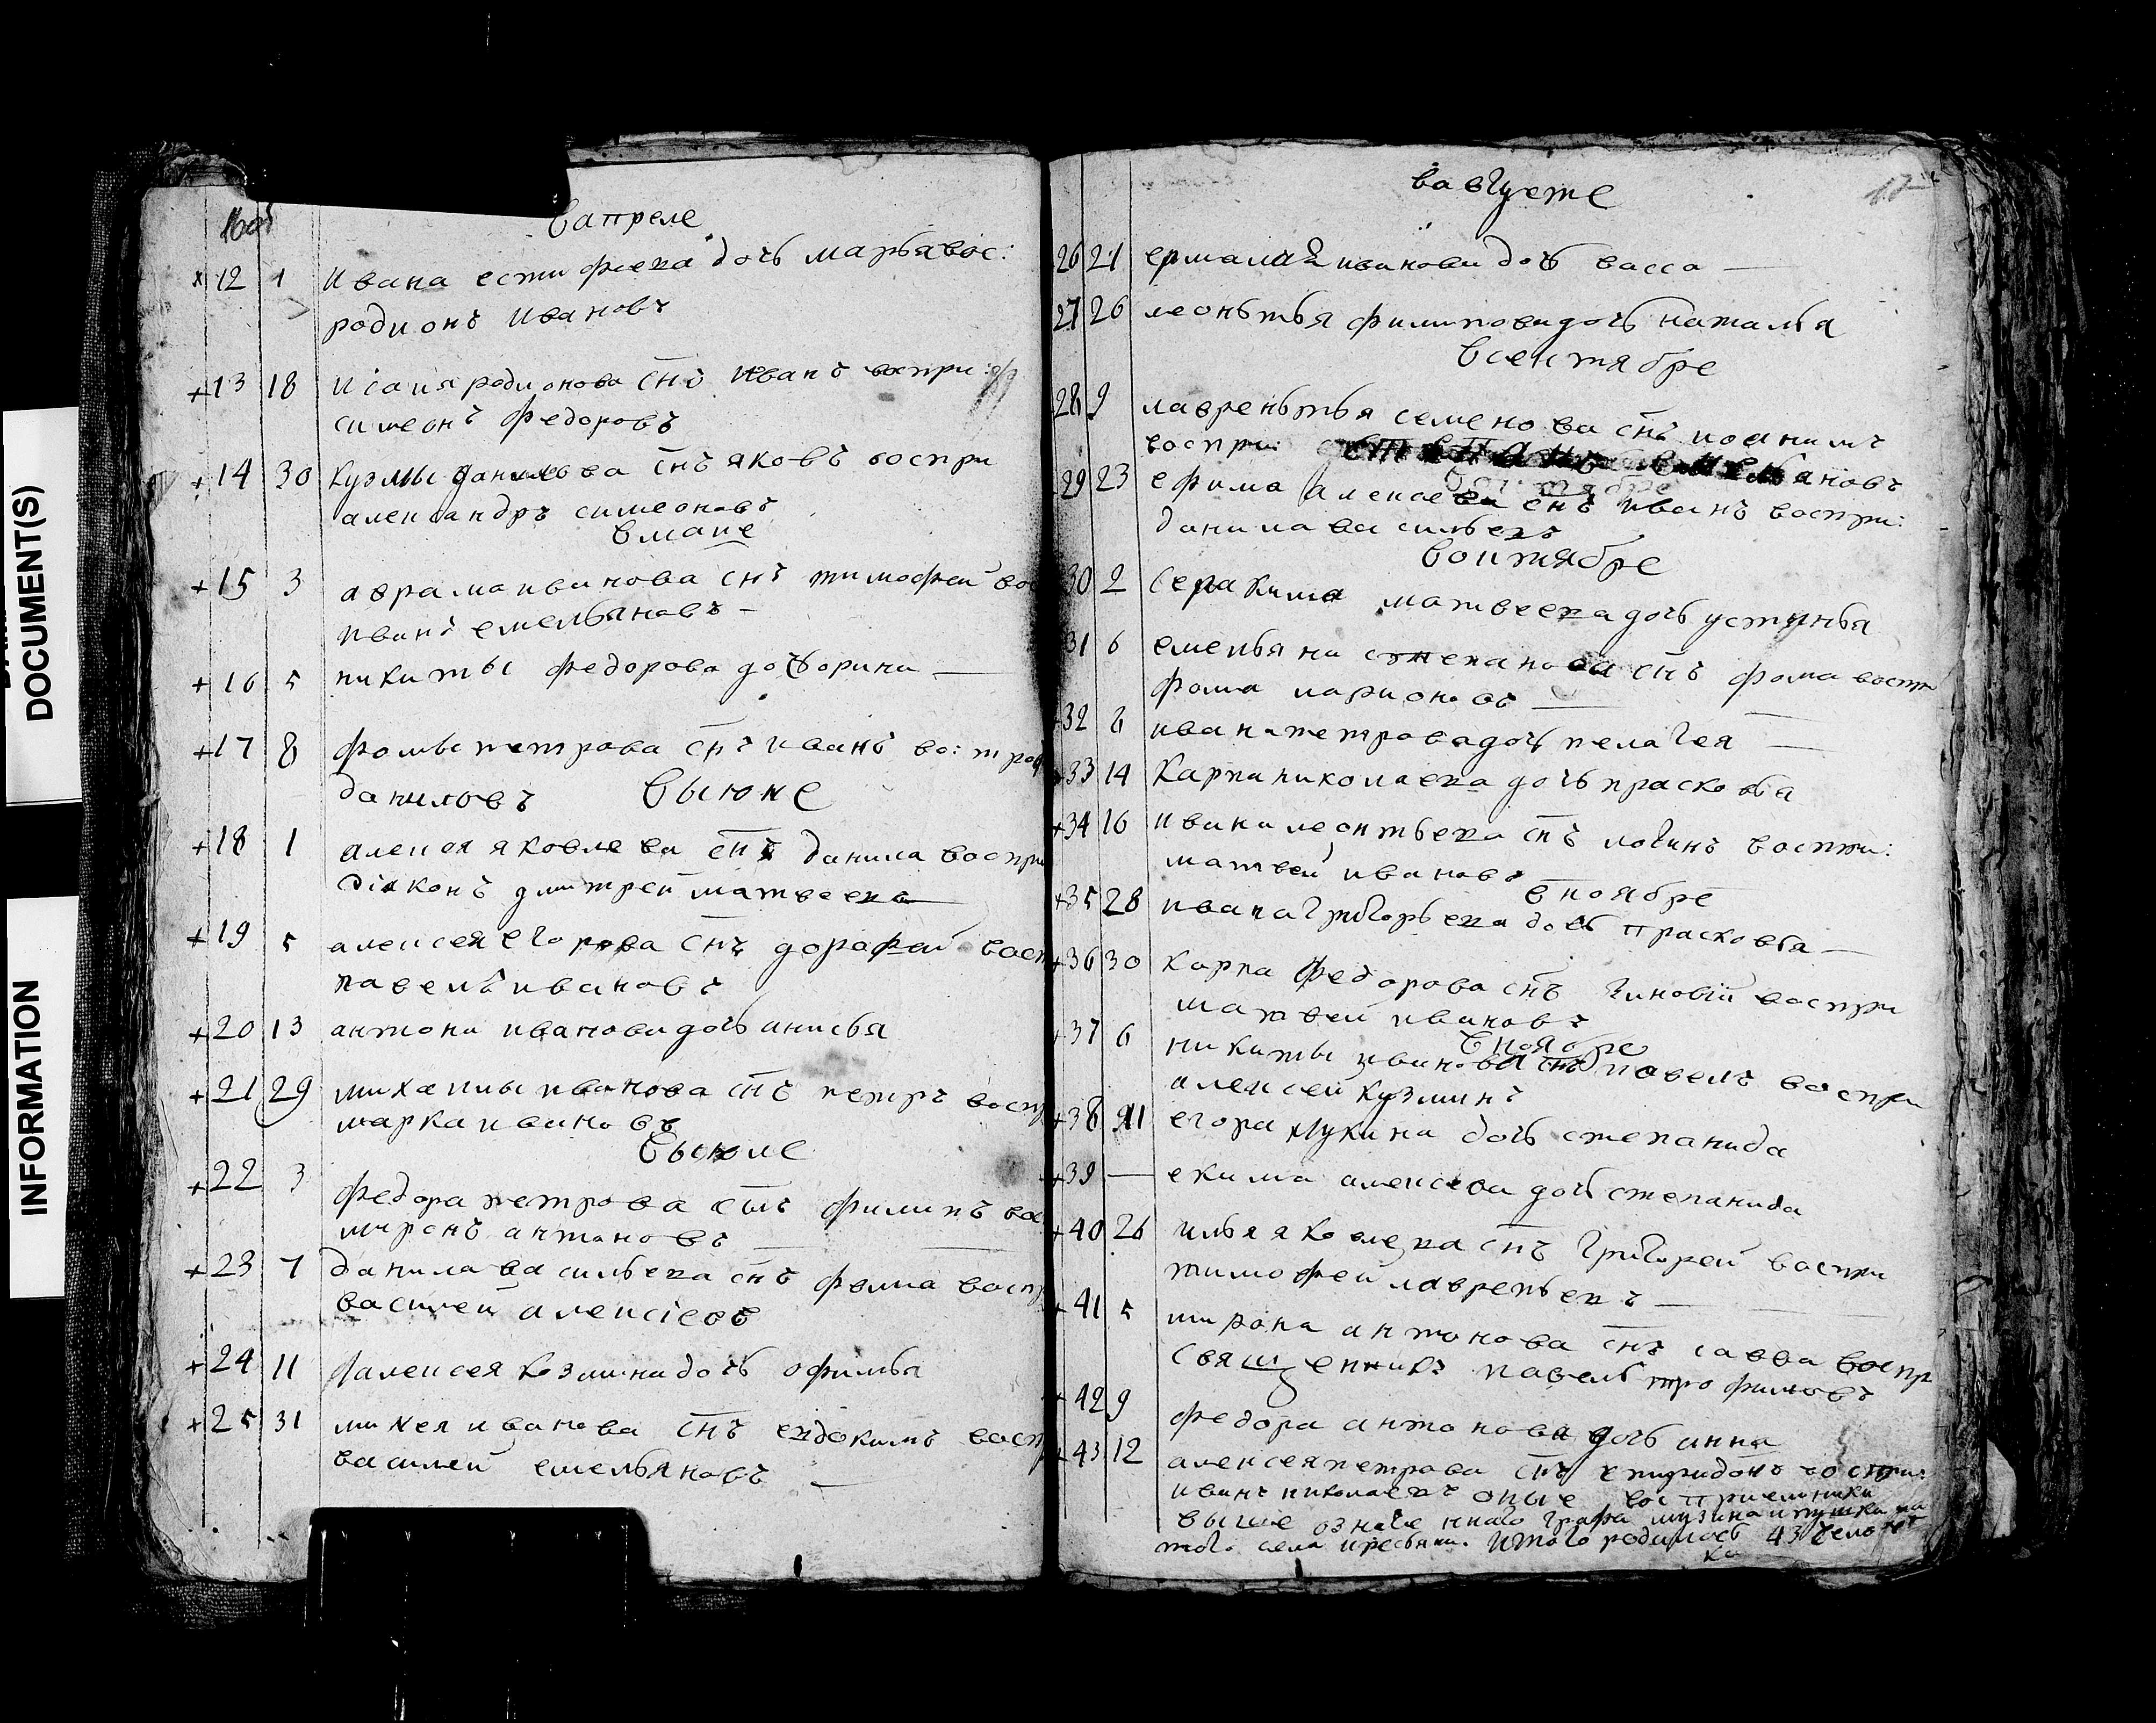 DOCUMENT(S)
INFORMATION
вапреле
12 1 ивана естифеева дочь марья вос:
родионъ ивановъ
13 18 исаия родионова снъ иванъ воспри:
симеонъ федоровъ
14 30 кузмы данилова снъ яковъ воспри
александръ симеоновъ
вмаие
15 3 аврама иванова снъ тимофей
иванъ емельяновъ
16 5 никиты федорова дочь орина
17 8 фомы петрова снъ иванъ во:
даниловъ
выюне
18 1 алексея яковлева снъ данила воспри
діаконъ дмитрей матвеевъ
19 5 алексея егорова снъ дорафей восп
павелъ ивановъ
20 13 антона иванова дочь анисья
21 29 михаилы иванова снъ петръ воспр
марка ивановъ
выюле
22 3 федора петрова снъ филипъ вос
миронъ антоновъ
23 7 данила васильева снъ фома воспр
василей алексіевъ
24 11 алексея козмина дочь офимья
25 31 михея иванова снъ евдокимъ восп
василей емельяновъ
вавгусте
26 21 ермалая иванова дочь васса
27 26 леонтья филипова дочь наталья
всентябре
28 9 лавреньтья семенова снъ иоакимъ
воспри: ановъ
29 23 ефима алексеева снъ иванъ воспри:
данила васильевъ
воктябре
30 2 матвеева дочь устинья
31 6 емельяна степанова снъ фома воспри
фома ларионовъ
32 6 ивана петрова дочь пелагея
33 14 карпа николаева дочь прасковья
34 16 ивана леонтьева снъ логинъ воспри:
матвей ивановъ
вноябре
35 28 ивана григорьева дочь прасковья
36 30 карпа федорова снъ зиновій воспри
матвей ивановъ
вноябре
37 6 никиты иванова снъ павелъ воспри
алексей кузминъ
38 11 егора лукина дочь степанида
39 екима алексеева дочь степанида
40 26 илья яковлева снъ григорей воспри
тимофей лаврентьевъ
41 5 мирона антонова снъ савва воспр
священникъ павелъ трофимовъ
42 9 федора антонова дочь анна
43 12 алексея петрова снъ спиридонъ воспри:
иванъ николаевъ оные восприемники
выше означенного графа мусина пушкина
того села кресьяни. итого родилось 43 челове
ка